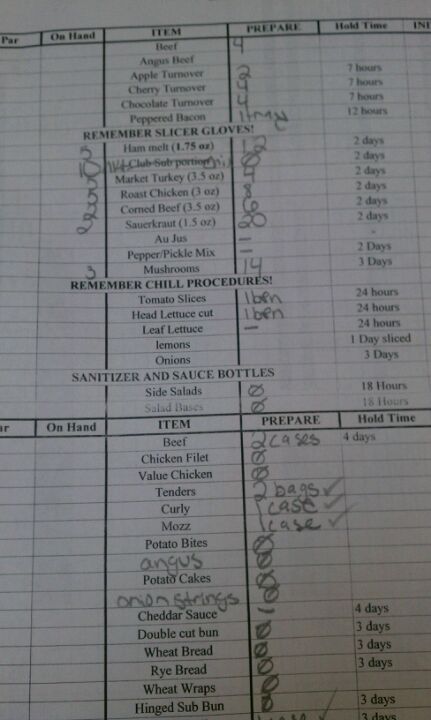 Par On Hand ITEM PREPARE Hold Time INI
Beef 4
Angus Beef
Apple Turnover 2 7 hours
Cherry Turnover 4 7 hours
Chocolate Turnover 4 7 hours
Peppered Bacon 1tray 12 hours
REMEMBER SLICER GLOVES!
3 Ham melt (1.75 oz) 12 2 days
10 Club Sub portion 0 2 days
Market Turkey (3.5 oz) 4 2 days
Roast Chicken (3 oz) 8 2 days
2 Corned Beef (3.5 oz) 6 2 days
2 Sauerkraut (1.5 oz) 20 2 days
Au Jus – -
Pepper/Pickle Mix – 2 Days
3 Mushrooms 14 3 Days
REMEMBER CHILL PROCEDURES!
Tomato Slices 1ben 24 hours
Head Lettuce cut 1ben 24 hours
Leaf Lettuce – 24 hours
lemons 1 Day sliced
Onions 3 Days
SANITIZER AND SAUCE BOTTLES
Side Salads 0 18 Hours
Salad Bases 0 18 Hours
ar On Hand ITEM PREPARE Hold Time
Beef 2 cases 4 days
Chicken Filet 0
Value Chicken 0
Tenders 2 bags ✓
Curly 1 case ✓
Mozz 1 case ✓
Potato Bites 0
angus 0
Potato Cakes 0
onion strings 0
Cheddar Sauce – 4 days
Double cut bun 0 3 days
Wheat Bread 0 3 days
Rye Bread 0 3 days
Wheat Wraps 0
Hinged Sub Bun 0 3 days
3 days